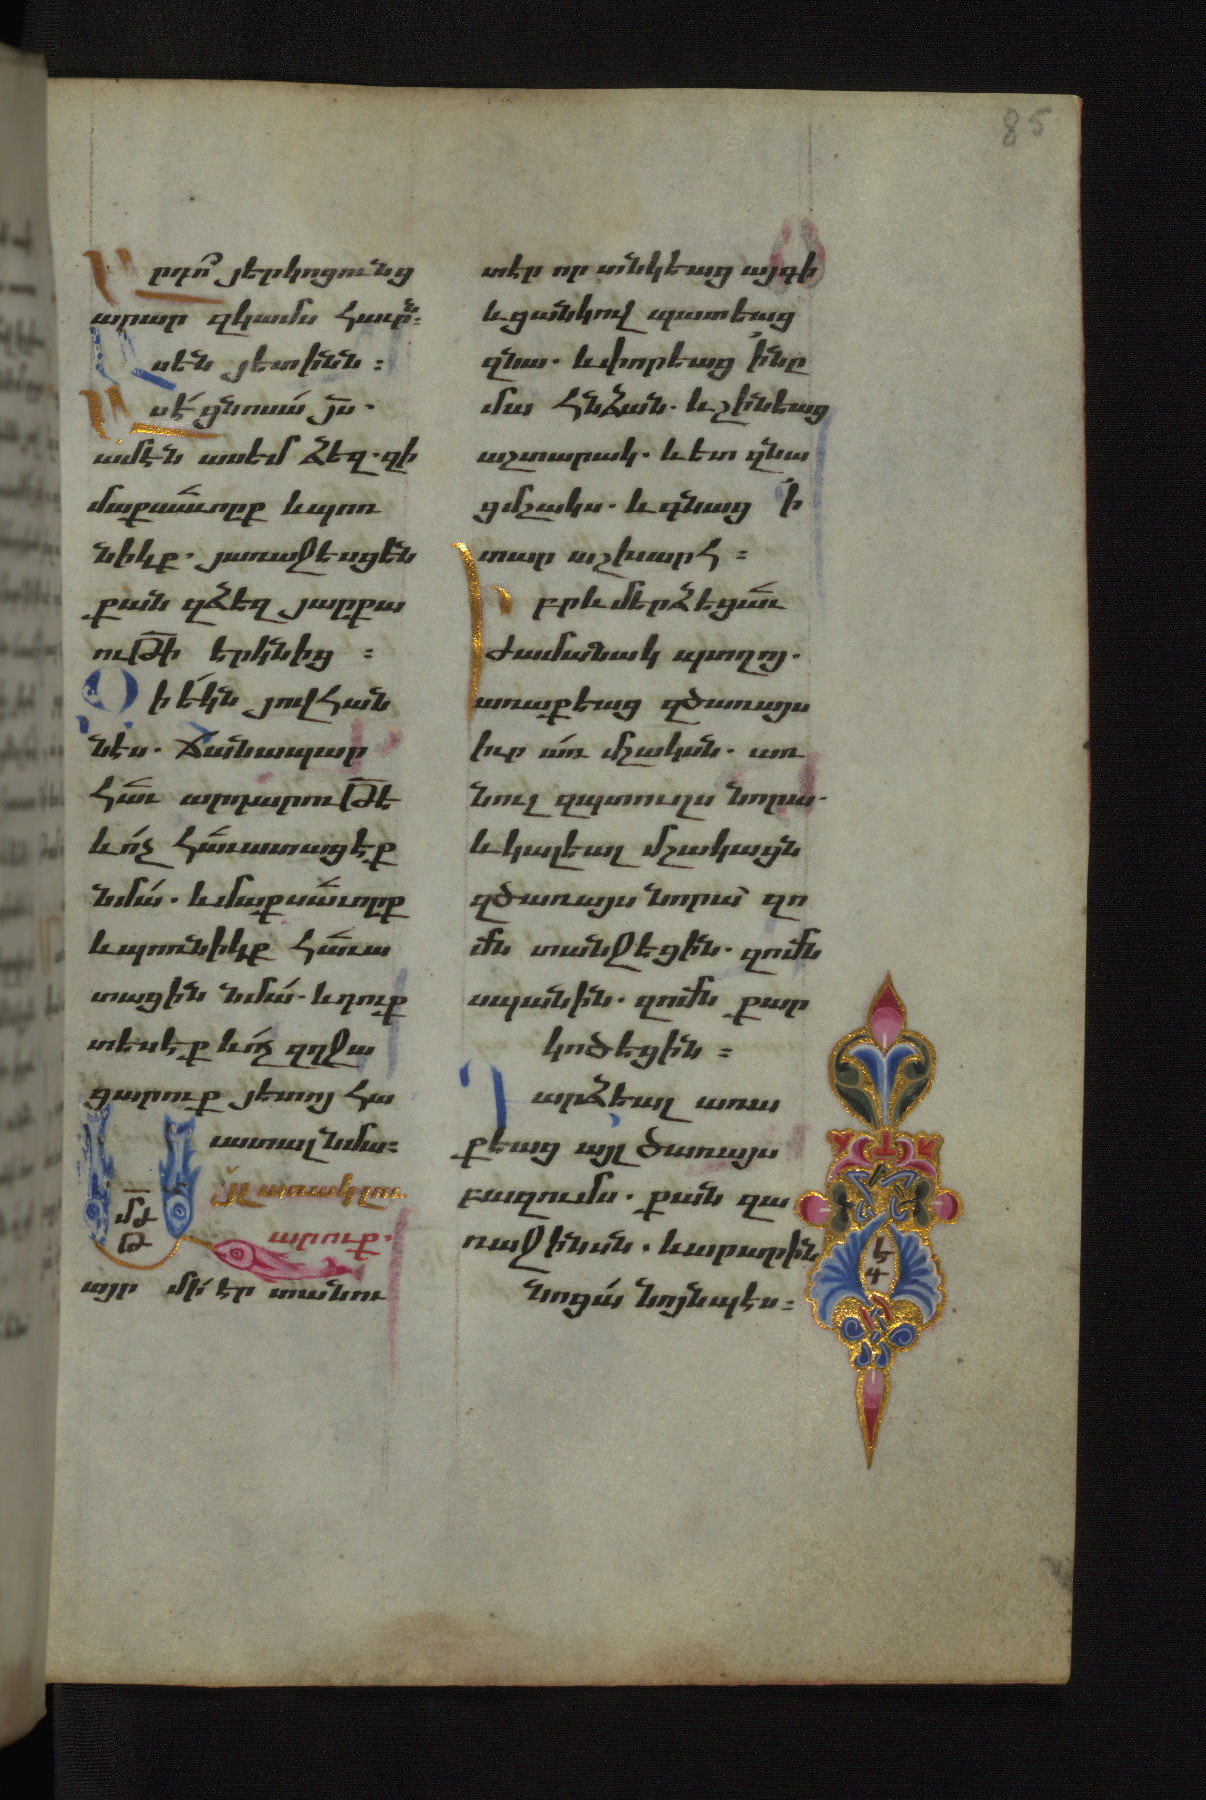 85
Ո րդո՞ յերկոցունց
արար զկամս հաւրն։
Ասեն յետինն։
Ասէ ցնոսա յս.
ամէն ասեմ ձեզ. զի
մաքսաւորք և պոռ
նիկք. յառաջեսցեն
քան զձեզ յարքա
ութի երկնից։
Զի եկն յովհան
նէս. ճանապար
հաւ արդարութե
և ոչ հաւատացէք
նմա. և մաքսաւորք
և պոռնիկք հաւա
տացին նմա. և դուք
տեսէք և ոչ զղջա
ցարուք յետոյ հա
ւատալ նմա։
մժ
թ
Այլ առակ լու
արուք.
այր մի էր տանու
տէր որ տնկեաց այգի
և ցանկով պատեաց
զնա. և փորեաց ի նը
մա հնձան. և շինեաց
աշտարակ. և ետ զնա
ցմշակս. և գնաց ի
տար աշխարհ։
Իբրև մերձեցաւ
ժամանակ պտղոյ.
առաքեաց զծառայս
իւր առ մշակսն. առ
նուլ զպտուղս նորա.
և կալեալ մշակացն
զծառայս նորա՝ զո
մն տանջեցին. զոմն
սպանին. զոմն քար
կոծեցին։
Դարձեալ առա
քեաց այլ ծառայս
բազումս. քան զա
ռաջինսն. և արարին
նոցա նոյնպէս։